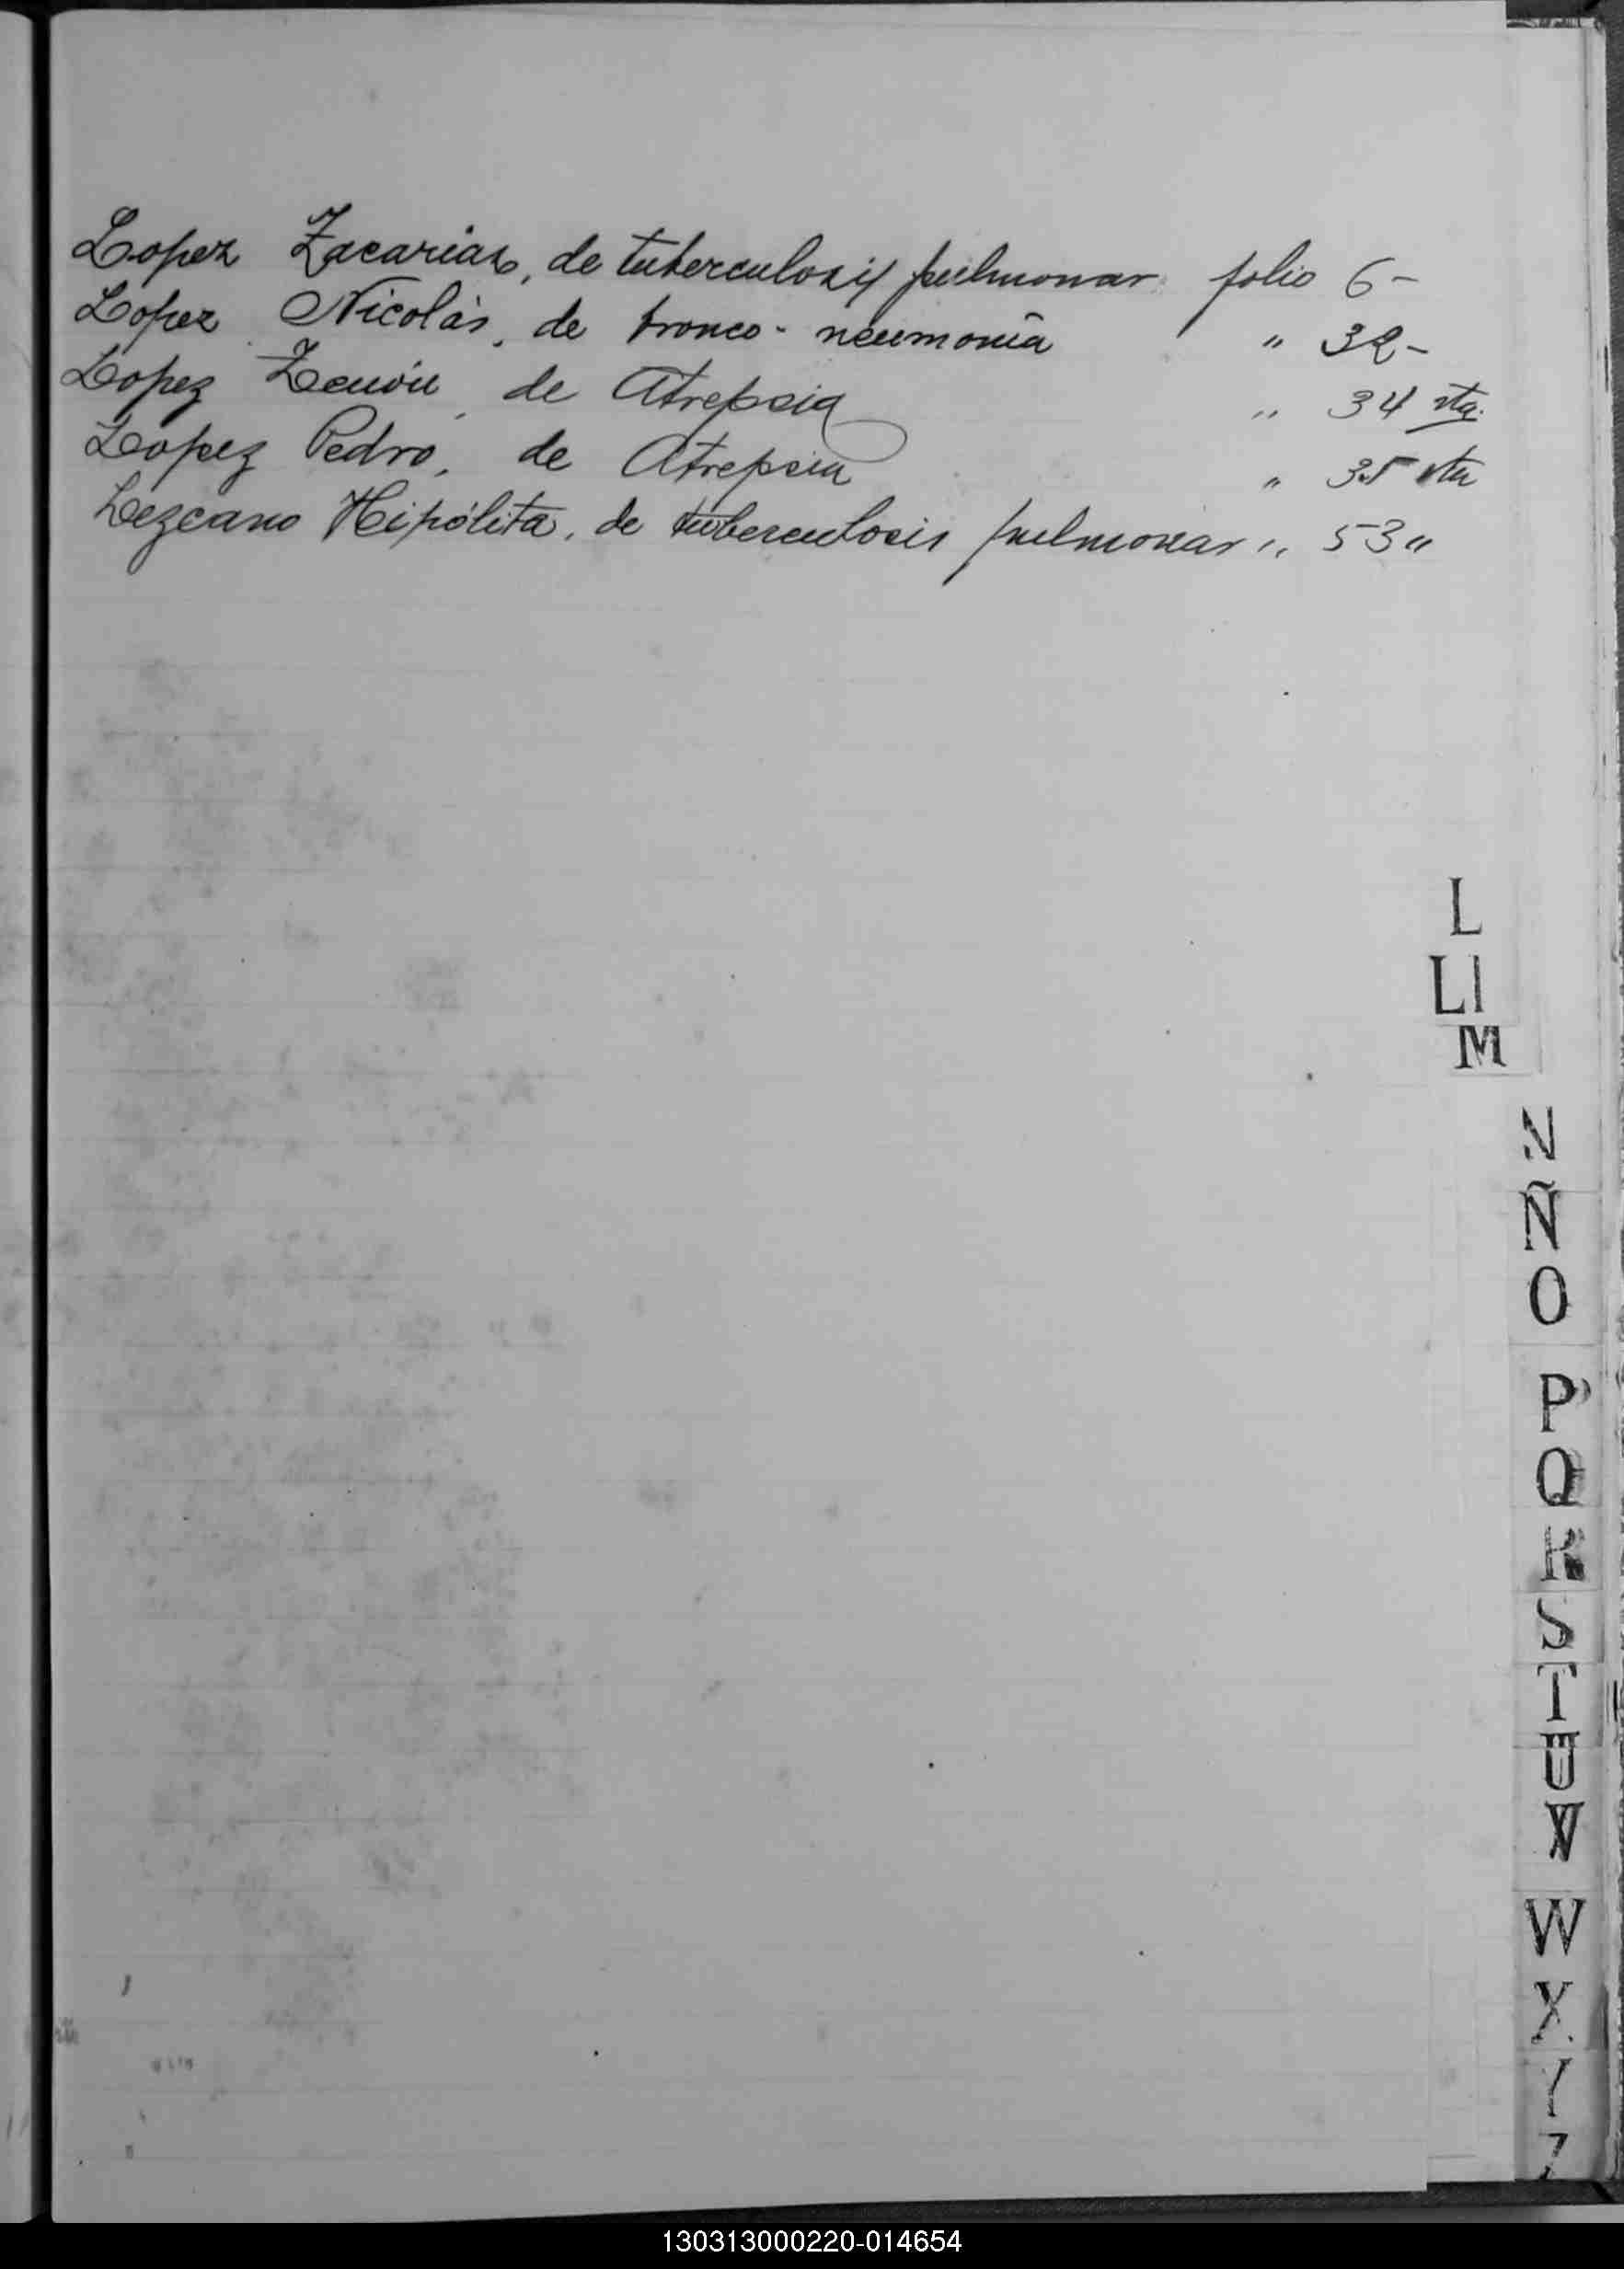 Lopez Zacarias, de tuberculosis pulmonar folio 6-
Lopez Nicolás, de bronco-neumonía " 32-
Lopez Zenón de Atrepsia " 34 vta.
Lopez Pedro, de Atrepsia " 35 vta
Lezcano Hipólita, de tuberculosis pulmonar " 53 "
L
Ll
M
N
Ñ
O
P
Q
R
S
T
U
V
W
X
Y
Z
130313000220-014654